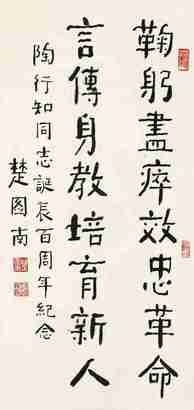 鞠躬盡瘁效忠革命
言傳身教培育新人
陶行知同志誕辰百周年紀念
楚图南